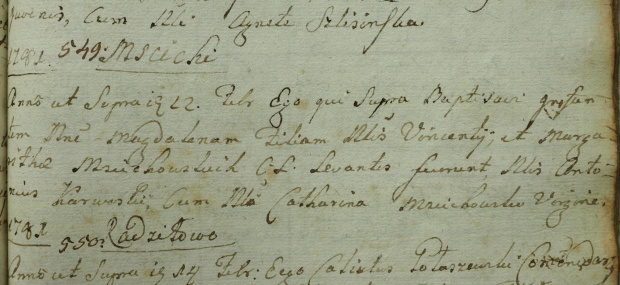 Juvenis, Cum Mli Agnete Szlisinska.
1781. 549. Mscichi
Anno ut Supra id 22. Febr Ego qui Supra Baptisavi Infan-
tem Nne Magdalenam Filiam Mlis Vincentij, et Marga-
rithæ Mscichowskich C. L. Levantes fuerunt Mlis Anto-
nius Karwoski, Cum Mla Catharina Mscichowska Virgine.
1781 550. Radziłowo
Anno ut Supra id 24 Febr: Ego Calixtus Potaszewski Commendarz